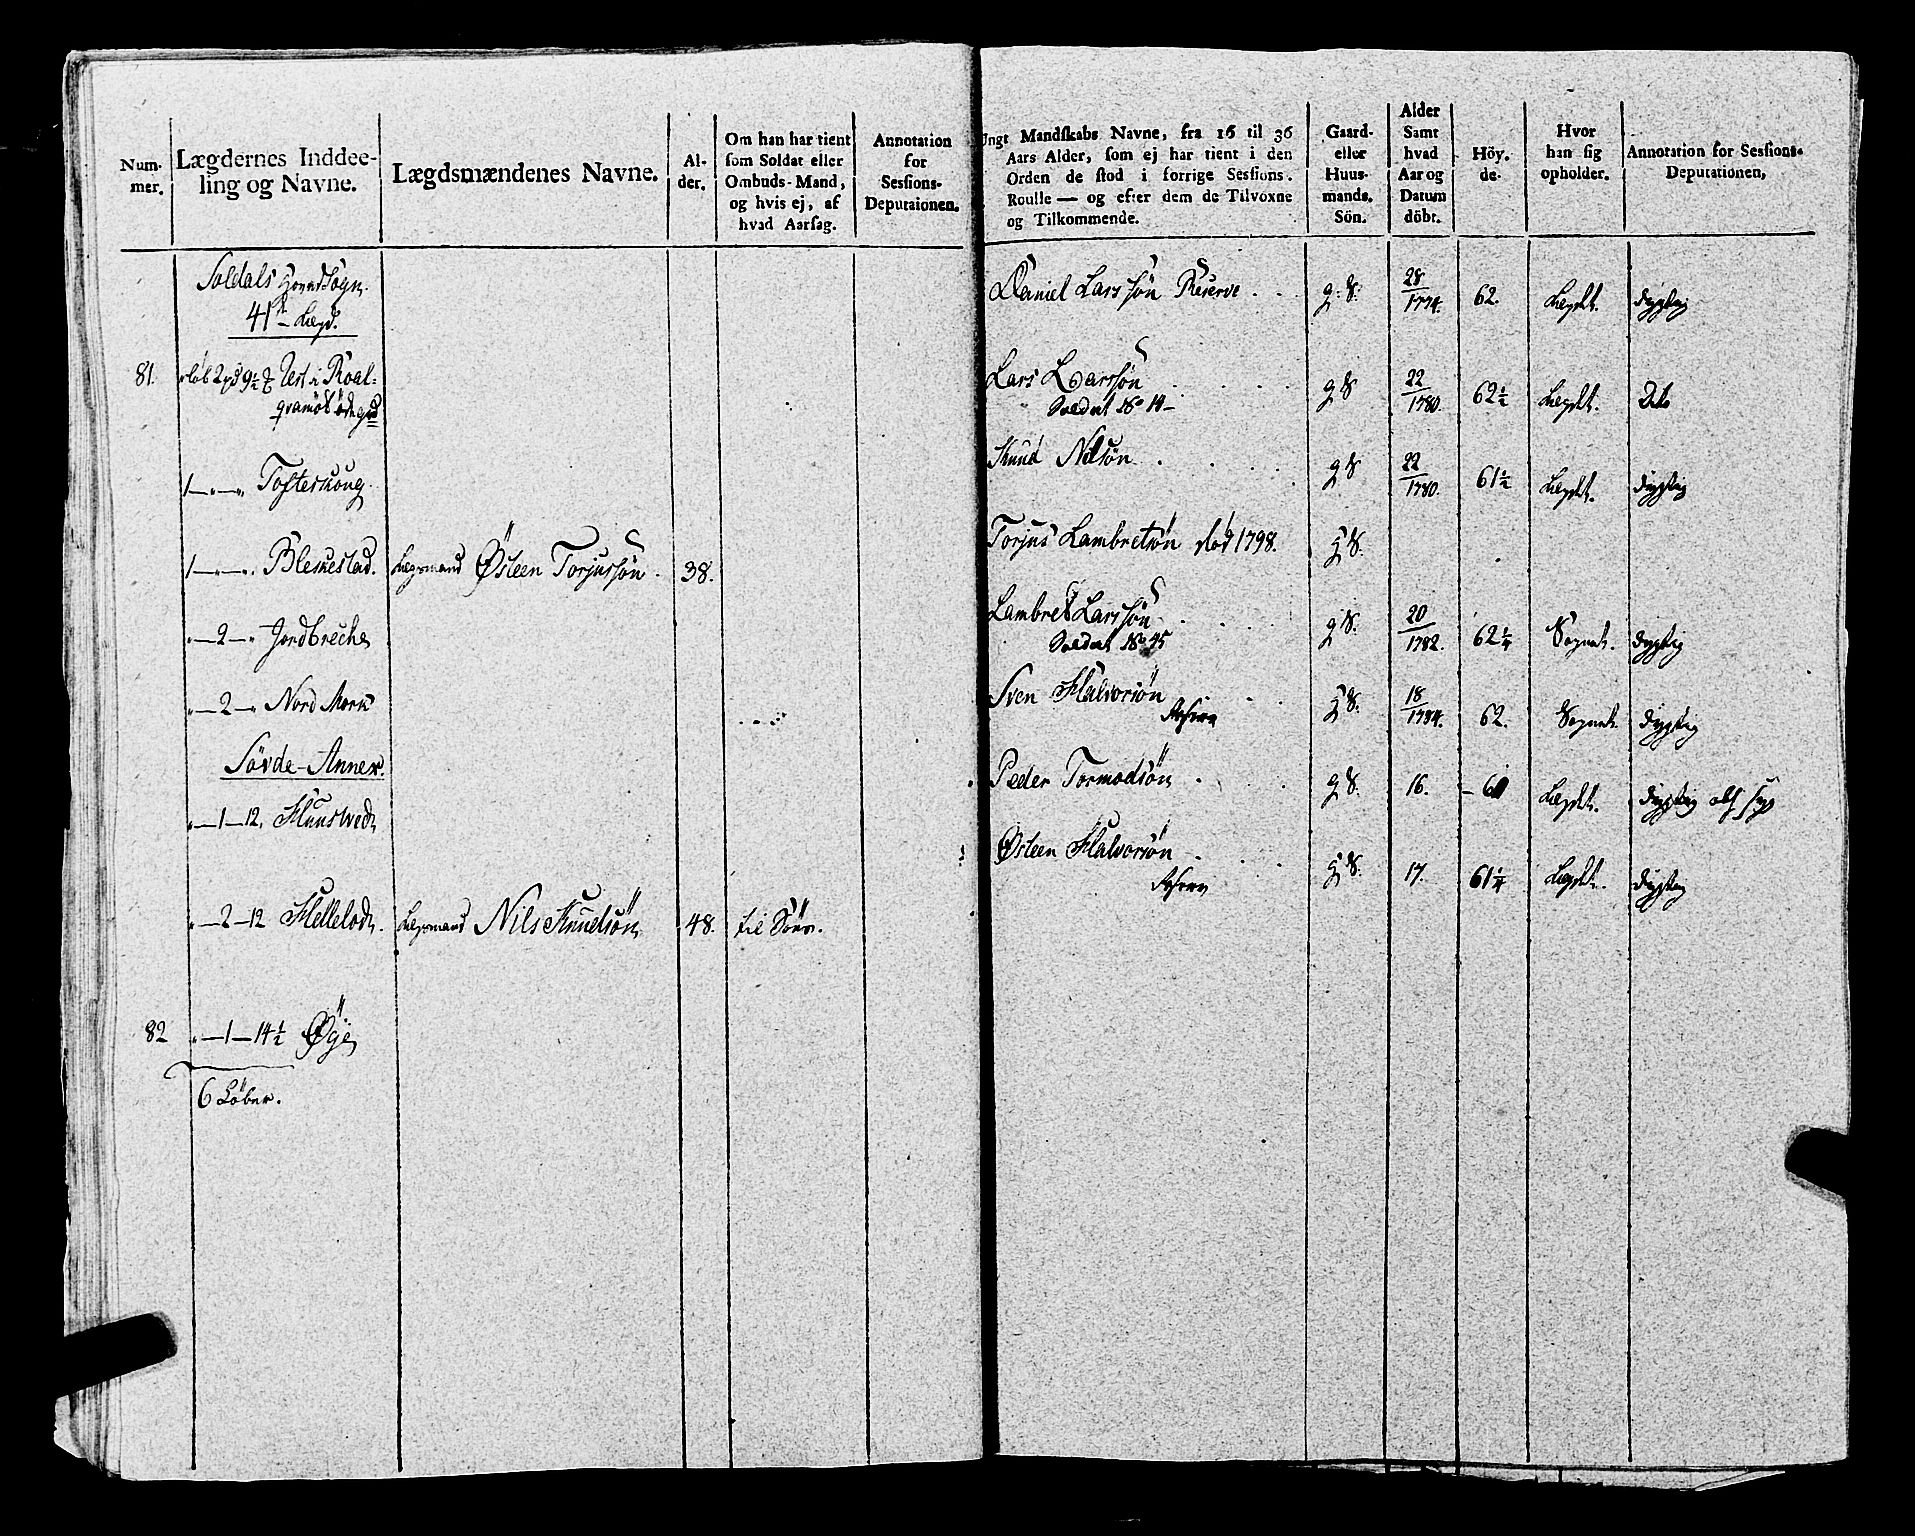 Num-
mer.
Lægdernes Inddee-
ling og Navne.
Lægdsmændenes Navne.
Al-
der.
Om han har tient
som Soldat eller
Ombuds-Mand,
og hvis ej, af
hvad Aarsag.
Annotation
for
Sessions-
Deputaionen.
Soldals Hovedsogn
41de Lægd.
81. 1 Løb 2 pd 9½ Vest i Roal-
qvamøe ødegrd
1 — " — " Tofteskoug.
1 — " — " Bleskestad. Lægsmand Østeen Torjussøn. 38.
" — 2 — " Jordbrecke
" — 2 — " Nord Mork
Søvde-Annex.
" — 1 — 12. Huustved
" — 2 — 12 Helleland. Lægsmand Nils Knudsøn 48. til Søes.
82 " — 1 — 14½ Øye
6 Løber.
Ungt Mandskabs Navne, fra 16 til 36
Aars Alder, som ej har tient i den
Orden de stod i forrige Sessions.
Roulle — og efter dem de Tilvoxne
og Tilkommende.
Gaard-
eller
Huus-
mands.
Sön.
Alder
Samt
hvad
Aar og
Datum
döbt.
Höy.
de.
Hvor
han sig
opholder.
Annotation for Sessions-
Deputationen,
Daniel Larssøn Reserve . . g: S: 28/1774. 62. Lægdet. dygtig
Lars Larssøn . . . g S 22/1780. 62½ Lægdet. Do
Soldat No 14 —
Knud Nilsøn . . . g S 22/1780. 61½ Lægdet. dygtig
Torjus Lambretsøn død 1798. g S.
Lambret Larssøn . . . g S. 20/1782. 62¼ Sognet. dygtig
Soldat No 45
Sven Halvorsøn . . g S. 18/1784. 62. Sognet. dygtig
Peder Tormodsøn . . . g S. 16. — 60 Lægdet. dygtig
Østeen Halvorsøn . . . g S. 17. 61¼ Lægdet. dygtig